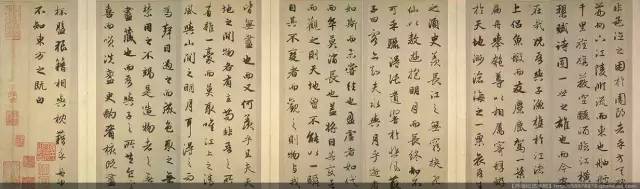 非孟德之困於周郎者乎方其破
荊州下江陵順流而東也舳艫
千里旌旗蔽空釃酒臨江橫
槊賦詩固一世之雄也而今安
在哉況吾與子漁樵於江渚
上侶魚蝦而友麋鹿駕一葉
扁舟舉匏樽以相屬寄蜉蝣
於天地渺滄海之一粟哀吾生
之須臾羨長江之無窮挾飛
仙以遨遊抱明月而長終知不
可乎驟得託遺響於悲風蘇
子曰客亦知夫水與月乎逝者
如斯而未嘗往也盈虛者如彼
而卒莫消長也蓋將自其變者
而觀之則天地曾不能以一瞬
自其不變者而觀之則物與我
皆無盡也而又何羨乎且夫天
地之間物各有主苟非吾之所
有雖一毫而莫取惟江上之清
風與山間之明月耳得之而
為聲目遇之而成色取之無
禁用之不竭是造物者之無
盡藏也而吾與子之所共
客喜而笑洗盞更酌肴核既盡
杯盤狼籍相與枕藉乎舟中
不知東方之既白